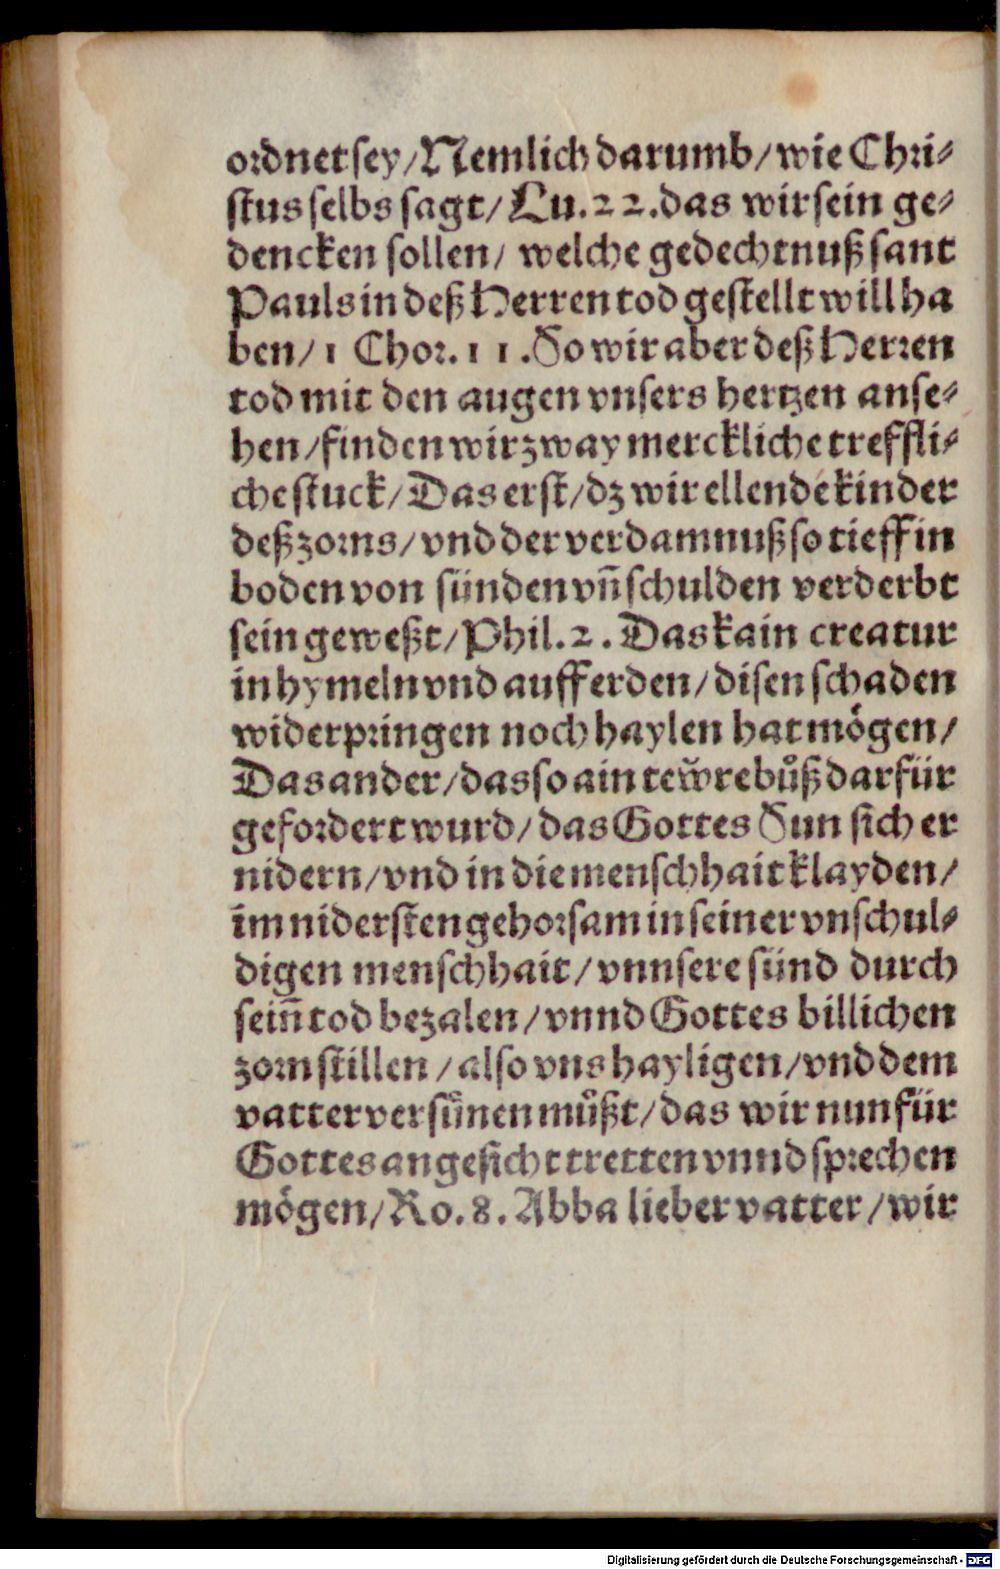 ordnet sey/ Nemlich darumb/ wie Chri⸗
stus selbs sagt/ Lu. 22. das wir sein ge⸗
dencken sollen/ welche gedechtnuß sant
Pauls in deß Herren tod gestellt will ha
ben/ 1 Chor. 11. So wir aber deß Herren
tod mit den augen vnsers hertzen anse⸗
hen/ finden wir zway merckliche treffli⸗
che stuck/ Das erst/ dz wir ellende kinder
deß zorns/ vnd der verdamnuß so tieff in
boden von sünden vñ schulden verderbt
sein geweßt/ Phil. 2. Das kain creatur
in hymeln vnd auff erden/ disen schaden
widerpringen noch haylen hat mögen/
Das ander/ das so ain teẅre bůß darfür
gefordert wurd/ das Gottes Sun sich er
nidern/ vnd in die menschhait klayden/
im nidersten gehorsam in seiner vnschul⸗
digen menschhait/ vnnsere sünd durch
sein̄ tod bezalen/ vnnd Gottes billichen
zorn stillen/ also vns hayligen/ vnd dem
vatter versůnen můßt/ das wir nun für
Gottes angesicht tretten vnnd sprechen
mögen/ Ro. 8. Abba lieber vatter/ wir
Digitalisierung gefördert durch die Deutsche Forschungsgemeinschaft - DFG